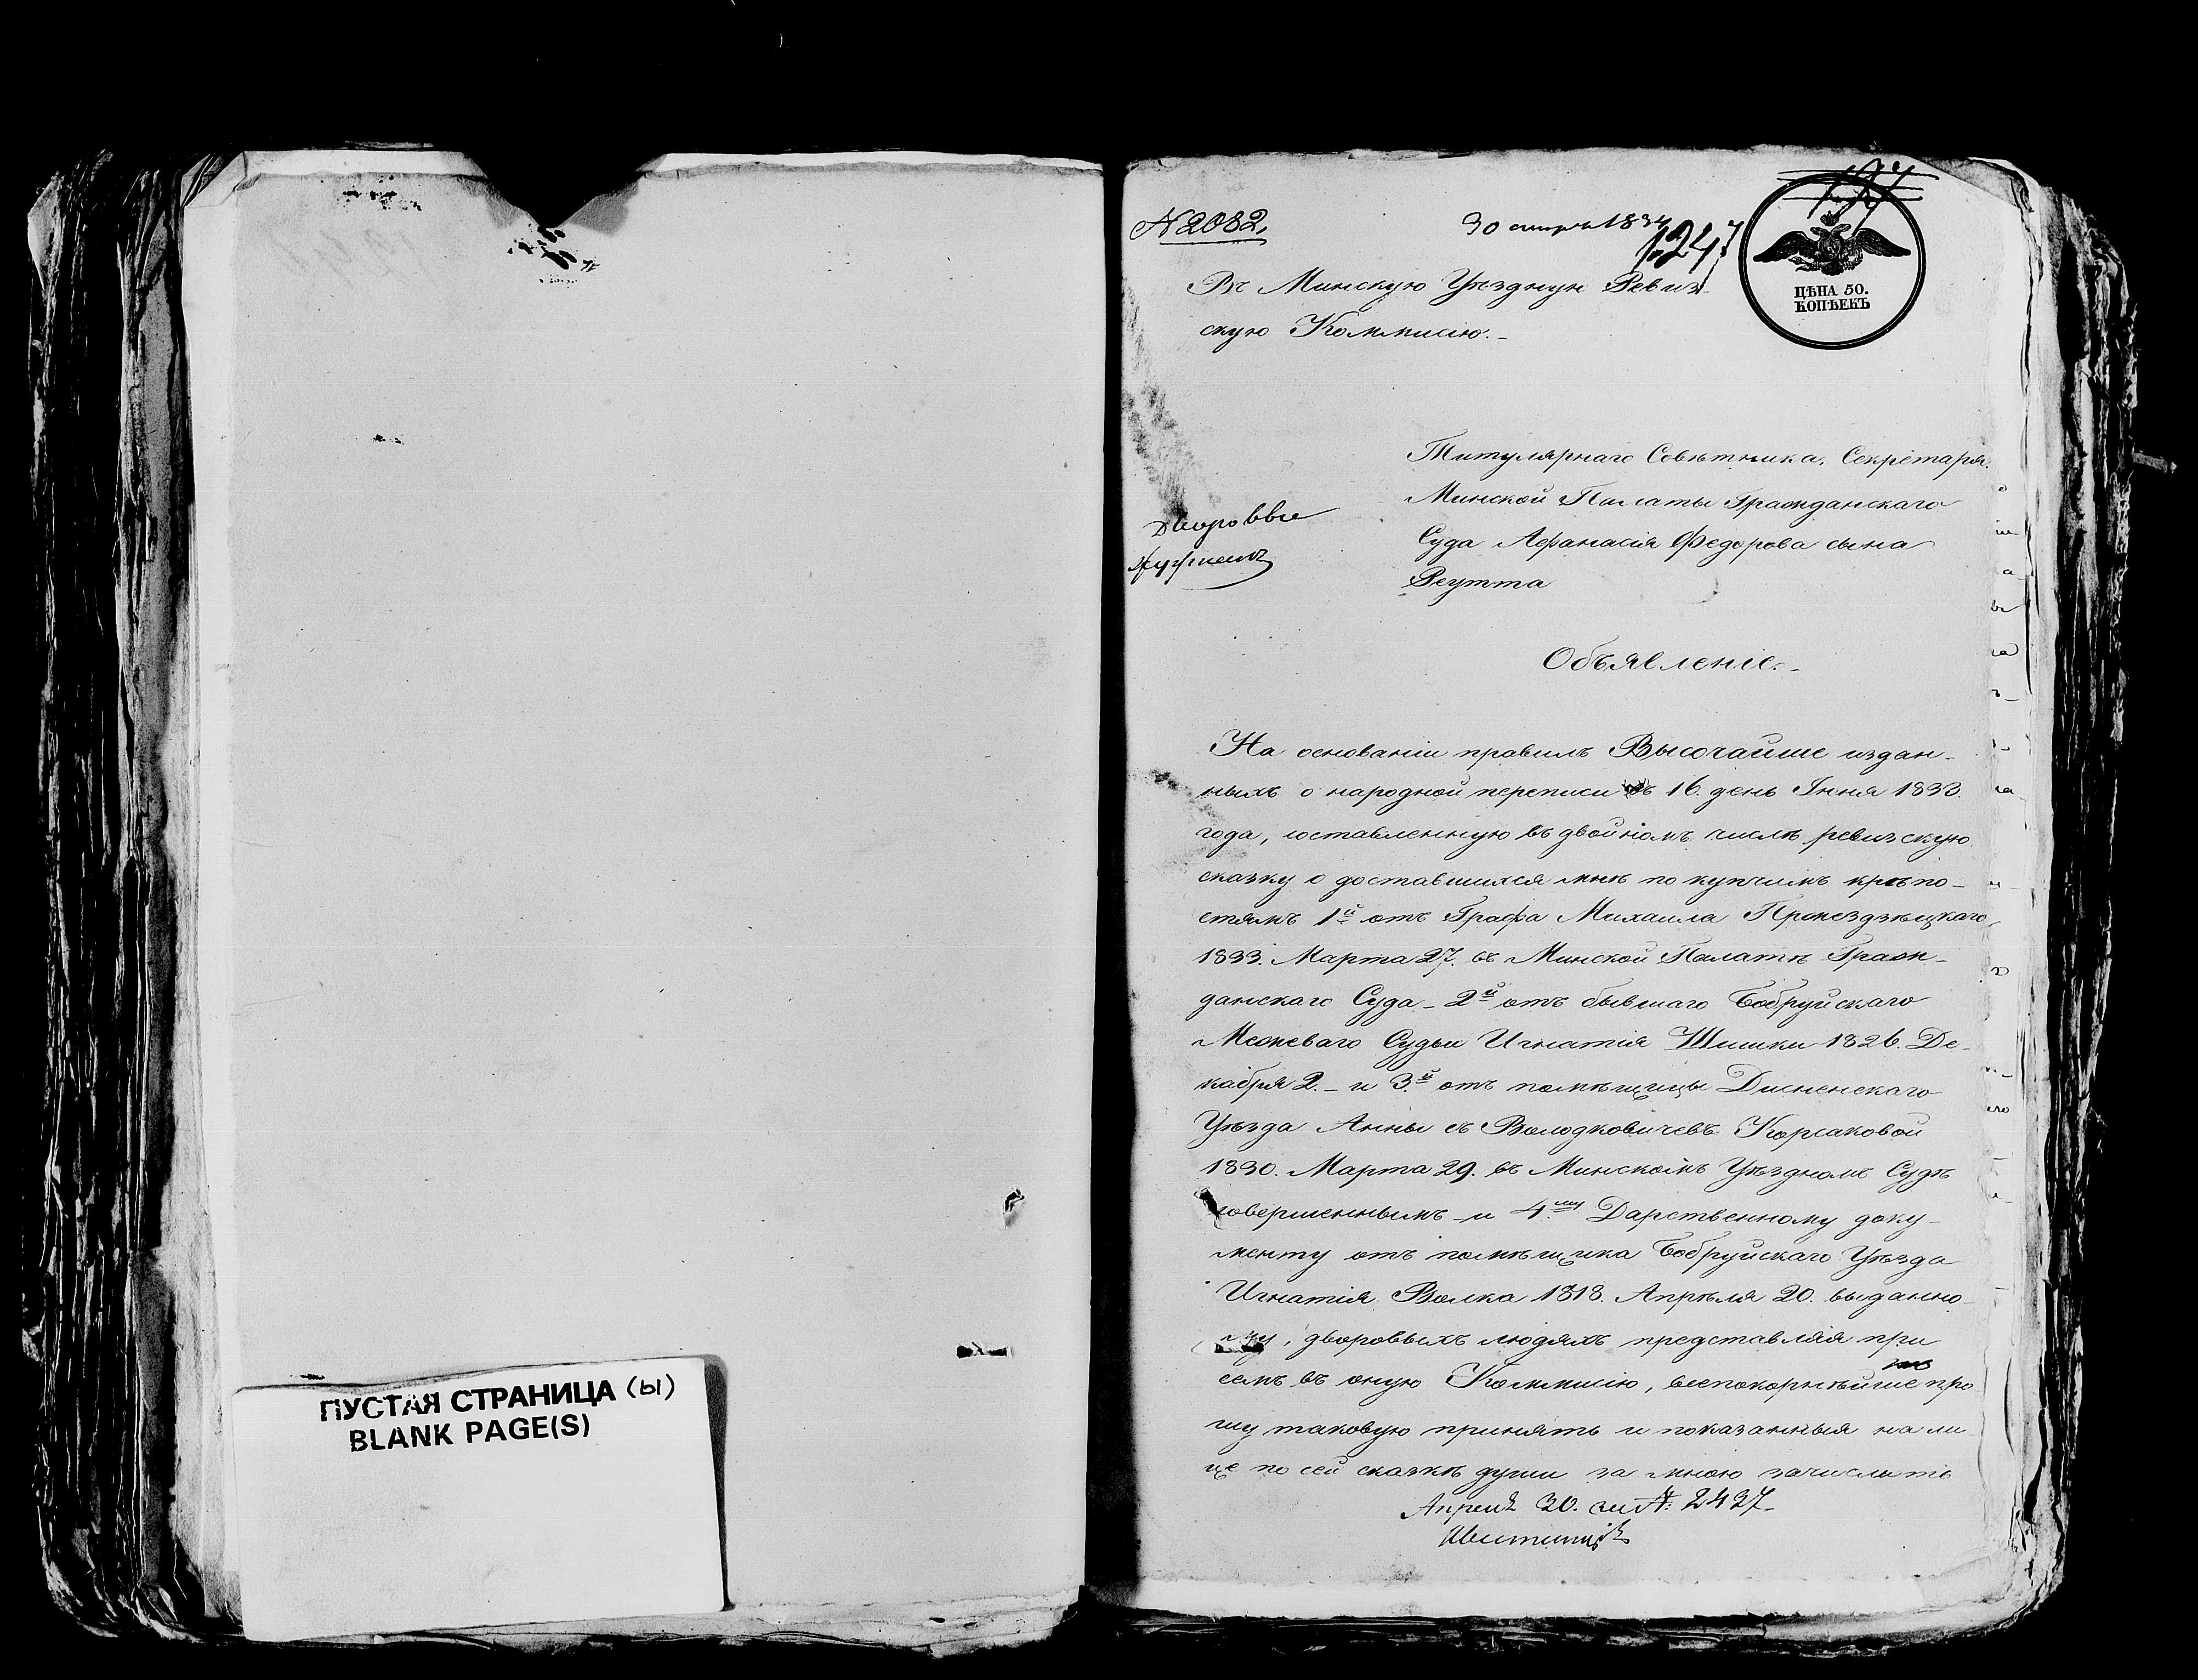 ПУСТАЯ СТРАНИЦА (ы)
BLANK PAGE(S)
N 2082.
30 апрѣля 1834
1247
ЦѢНА 50.
КОПѢЕКЪ
Въ Минскую Уѣздную Ревиз
скую Коммисію.-
Титулярнаго Совѣтника, Секретаря
Минской Палаты Гражданскаго
Суда Афанасія Федорова сына
Реутта
Дворовые
Объявленіе.-
На основаніи правилъ Высочайше издан-
ныхъ о народной переписи въ 16. день Іюня 1833.
года, составленную въ двойномъ числѣ ревизскую
сказку о доставшихся мнѣ по купчимъ крѣпо-
стямъ 1й отъ Графа Михаила Пржездзѣцкаго
1833. Марта 27. въ Минской Палатѣ Граж-
данскаго Суда - 2й отъ бывшаго Бобруйскаго
Межеваго Судьи Игнатія Шишки 1826. Де-
кабря 2. - и 3.й отъ помѣщицы Дисненскаго
Уѣзда Анны съ Володковичевъ Корсаковой
1830. Марта 29. въ Минскомъ Уѣздномъ Судѣ
совершеннымъ - и 4.му Дарственному доку-
менту отъ помѣщика Бобруйскаго Уѣзда
Игнатія Волка 1818. Апрѣля 20. выданно-
му, дворовыхъ людяхъ представляя при
семъ въ оную Коммисію, всепокорнѣйше про
шу таковую принять и показанныя на ли
це по сей сказкѣ души за мною зачислить
30. 2437